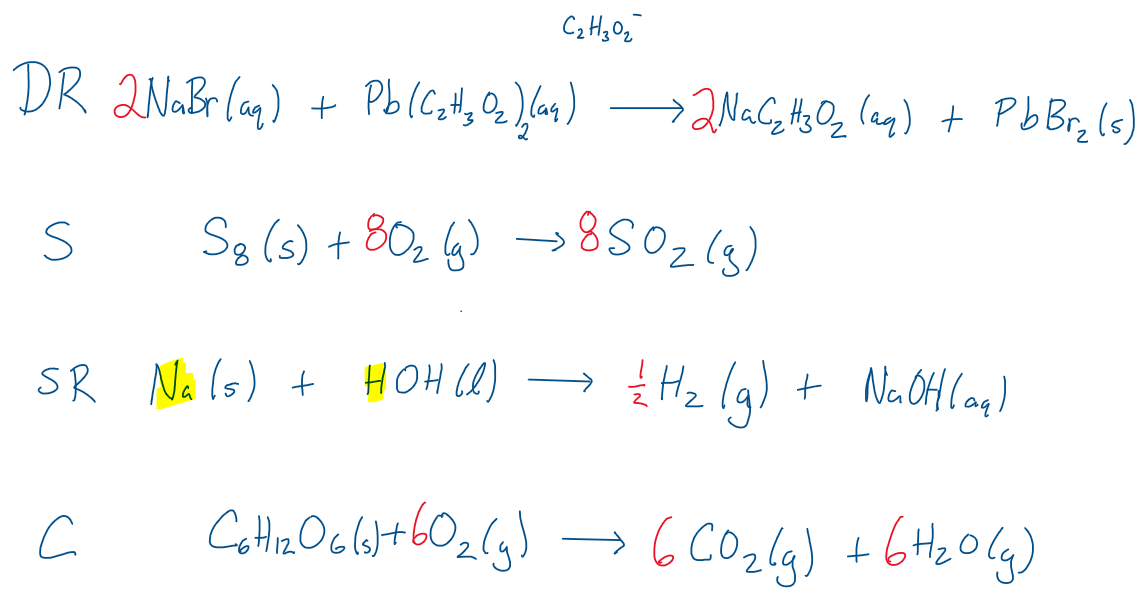 C₂H₃O₂⁻
DR 2NaBr(aq) + Pb(C₂H₃O₂)₂(aq) → 2NaC₂H₃O₂(aq) + PbBr₂(s)
S S₈(s) + 8O₂(g) → 8SO₂(g)
SR Na(s) + HOH(l) → ½H₂(g) + NaOH(aq)
C C₆H₁₂O₆(s) + 6O₂(g) → 6CO₂(g) + 6H₂O(g)